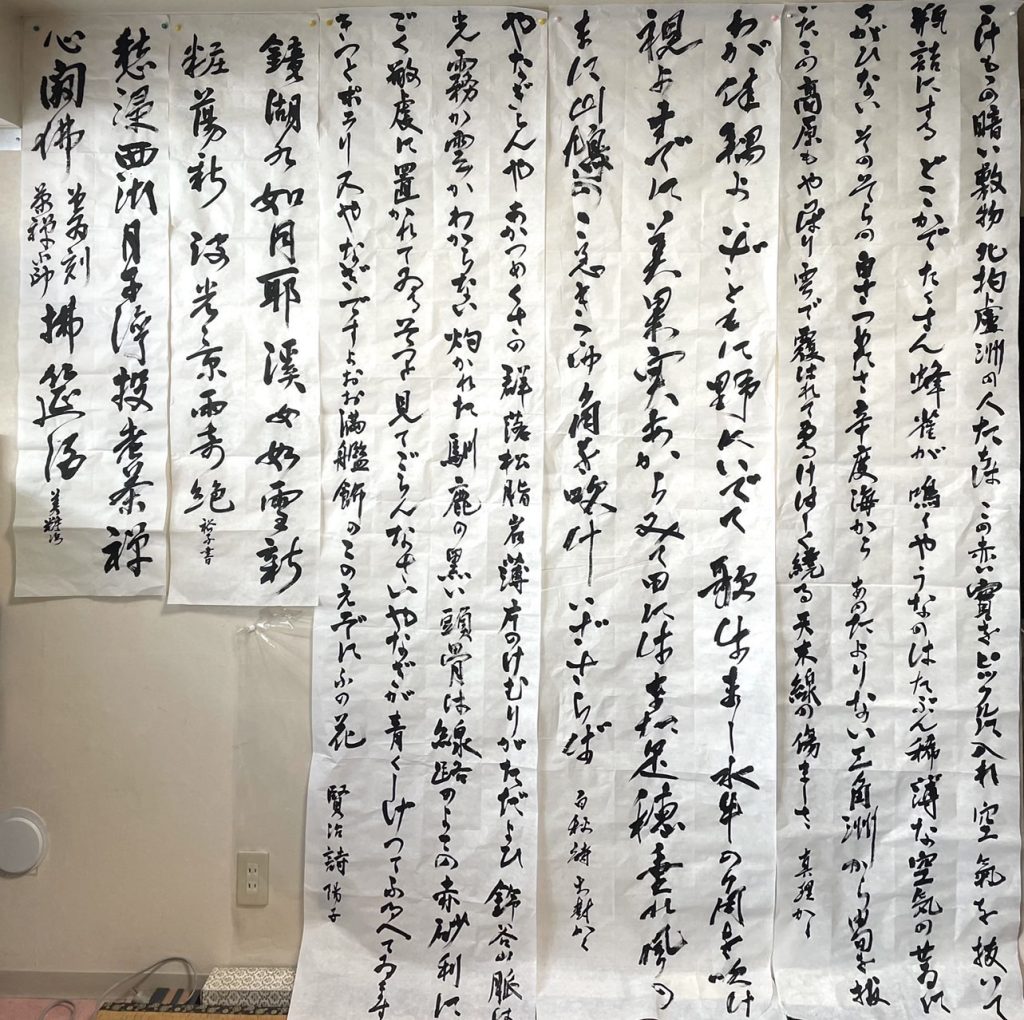 こけももの暗い敷物 北拘盧洲の人たちは この赤い實をピックルに入れ 空氣を抜いて
瓶詰にする どこかでたくさん蜂雀が 鳴くやうなのはたぶん稀薄な空気のせゐに
ちがひない そのそらの白さつめたさ 辛度海から あのたよりない三角洲から由旬を抜
いたこの高原も やはり雲で覆はれてゐる けはしく繞る天末線の傷ましさ 真理かく
わが佳耦よ いざともに野にいでて 歌はまし水牛の角を吹け
視よすでに美果実あからみて田にはまた足穂垂れ風の
まに山鳩のこゑきこゆ角を吹け いざさらば 白秋詩 大樹かく
やなぎらんや あかつめくさの群落 松脂岩薄片のけむりがただよひ 鈴谷山脈は
光霧か雲かわからない 灼かれた馴鹿の黒い頭骨は 線路のよこの赤砂利に
ごく敬虔に置かれてゐる そつと見てごらんなさい やなぎが青くしげつてふるへてゐます
きつとポラリスやなぎですよ おお満艦飾のこのえぞにふの花 賢治詩 陽子
鏡湖水如月耶溪女如雪新
粧蕩新波光景両奇絶 裕子書
西湖月 投老茶禅
心閑